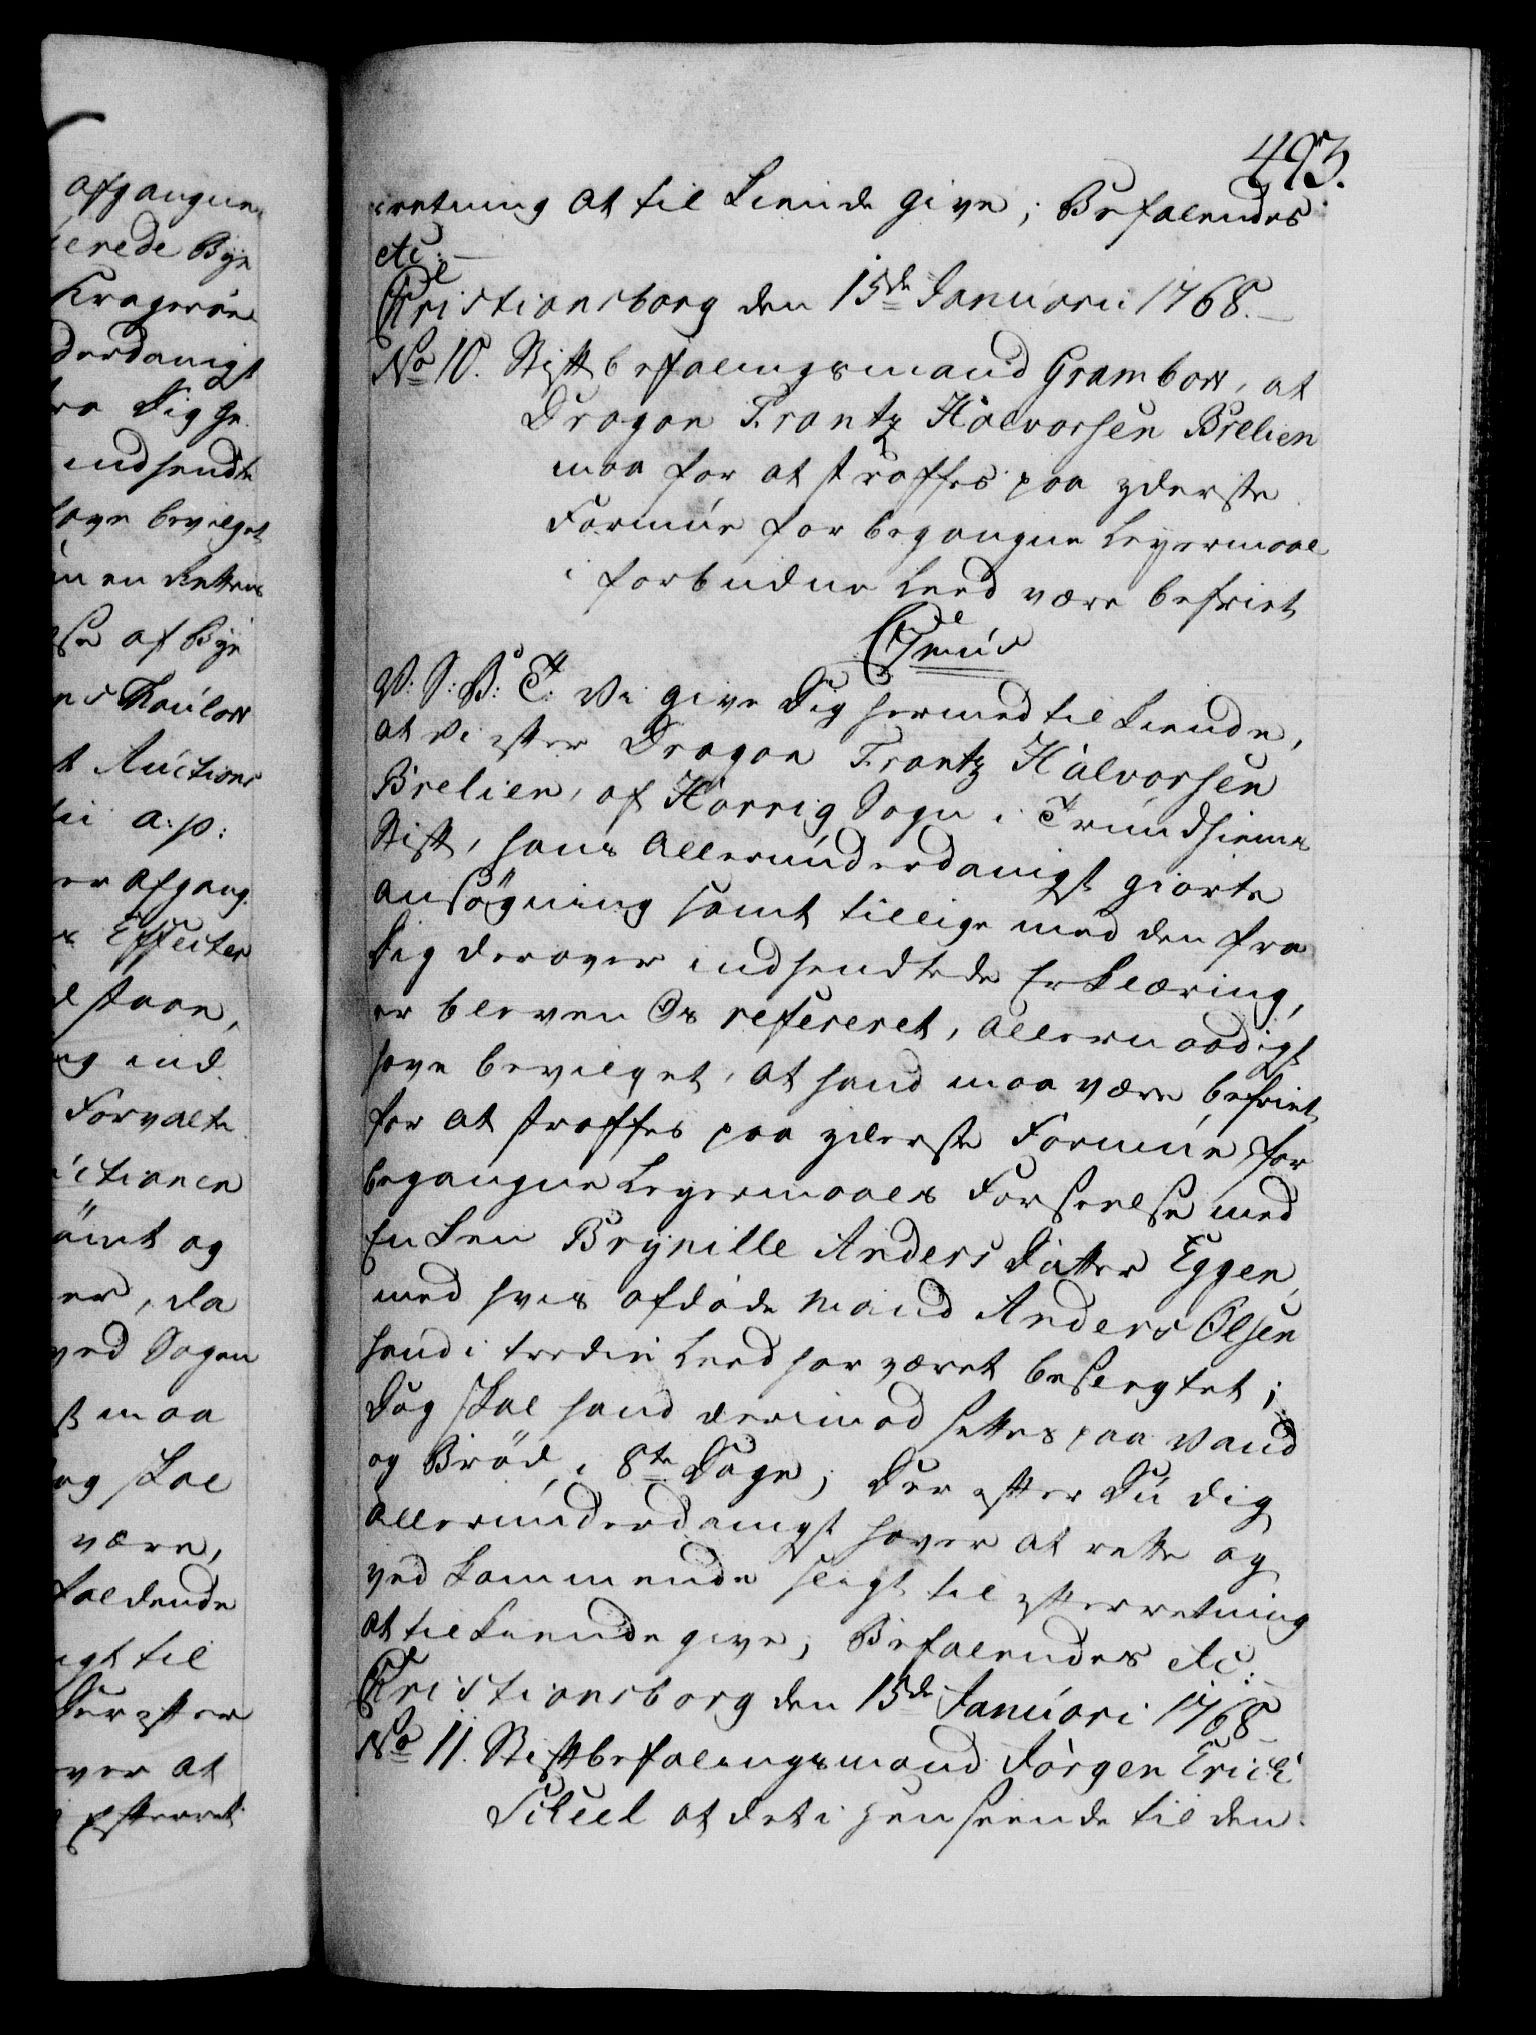 afgangne
Kragerøe
derdanigst
fra Dig
indsendte
have bevilget
se af Bye
Auctions
a: p:
er afgang
Effecter
staae,
og ind
Forvalte
uctionen
ømt og
er, da
ved Sagen
maa
og skal
være,
faldende
igt til
Derefter
ver at
Efterret
493.
retning at til kiende give; Befalendes
etc: —
Christiansborg den 15de Januarii 1768. —
No 10. Stiftbefalingsmand Grambow, at
Dragon Frantz Halvorsen Brelien
maa for at straffes paa yderste
Formue for begangne Leyermaal
i forbudne Leed være befriet
C7mus
V: S: B: T: Vi give Dig hermed til kiende,
at Vi efter Dragon Frantz Halvorsen
Brelien, af Horrig Sogn i Trundhiems
Stift, hans allerunderdanigst giorte
ansøgning samt tillige med den fra
Dig derover indsendtede Erklæring,
er bleven Os refereret, allernaadigst
have bevilget, at hand maa være befriet
for at straffes paa yderste Formue, for
begangne Leyermaals Forseelse med
Enken Brynille Anders Datter Eggen,
med hvis afdøde Mand Anders Olsen
hand i tredie Leed har været beslegtet;
Dog skal hand derimod settes paa Vand
og Brød i 8te Dage; Derefter Du dig
allerunderdanigst haver at rette og
vedkommende sligt til efterretning
at tilkiende give; Befalendes etc:
Christiansborg den 15de Januari 1768
No 11. Stiftbefalingsmand Jørgen Erich
Scheel at det i henseende til den